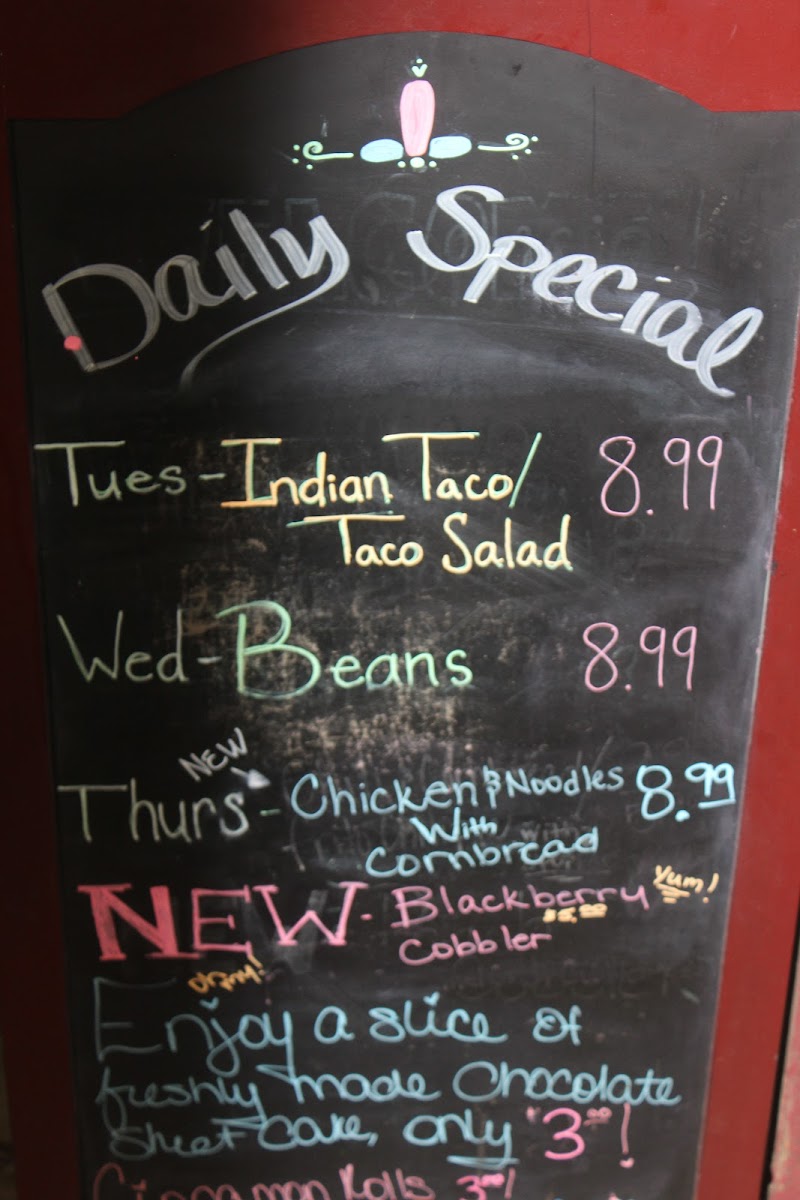 Daily Special
Tues - Indian Taco/ 8.99
Taco Salad
Wed - Beans 8.99
NEW
Thurs - Chicken & Noodles 8.99
With
Cornbread
NEW - Blackberry Yum!
Cobbler
Enjoy a slice of
freshly made Chocolate
Sheet Cake, only $3.00!
Cinnamon Rolls 3.00!